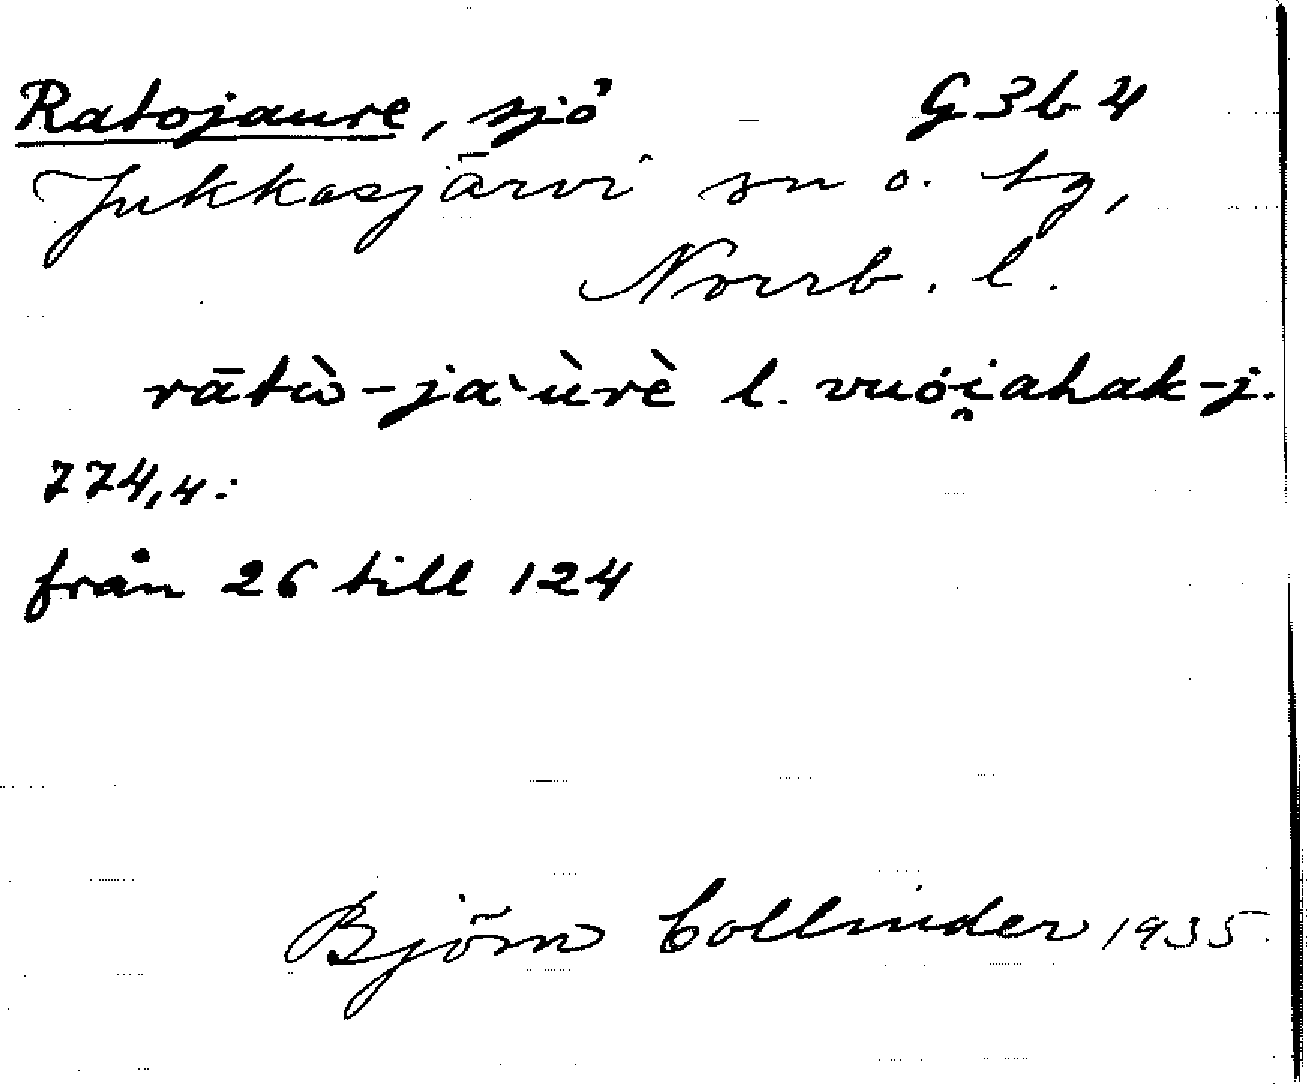 Ratojaure, sjö G 3 b 4
Jukkasjärvi sn o. tg,
Norrb. l.
rātù̀-ja`ùrè l. vuói̯ahak-j.
774,4:
från 26 till 124
Björn Collinder 1935